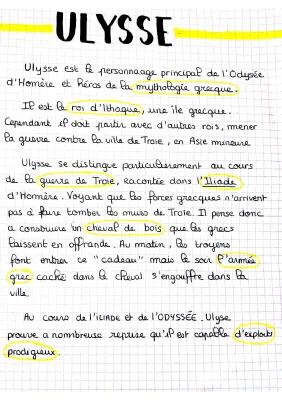 ULYSSE
Ulysse est le personnage principal de l'Odysée
d'Homère et Héros de la mythologie grecque.
Il est le roi d'Ithaque, une île grecque.
Cependant il doit partir avec d'autres rois, mener
la guerre contre la ville de Troie, en Asie mineure
Ulysse se distingue particulièrement au cours
de la guerre de Troie, racontée dans l'Iliade
d'Homère. Voyant que les forces grecques n'arrivent
pas à faire tomber les murs de Troie. Il pense donc
a construire un cheval de bois que les grecs
laissent en offrande. Au matin, les troyens
font entrer ce "cadeau" mais le soir l'armée
grec caché dans le cheval s'engouffre dans la
ville.
Au cours de l'ILIADE et de l'ODYSSÉE. Ulysse
prouve a nombreuse reprise qu'il est capable d'exploits
prodigieux.